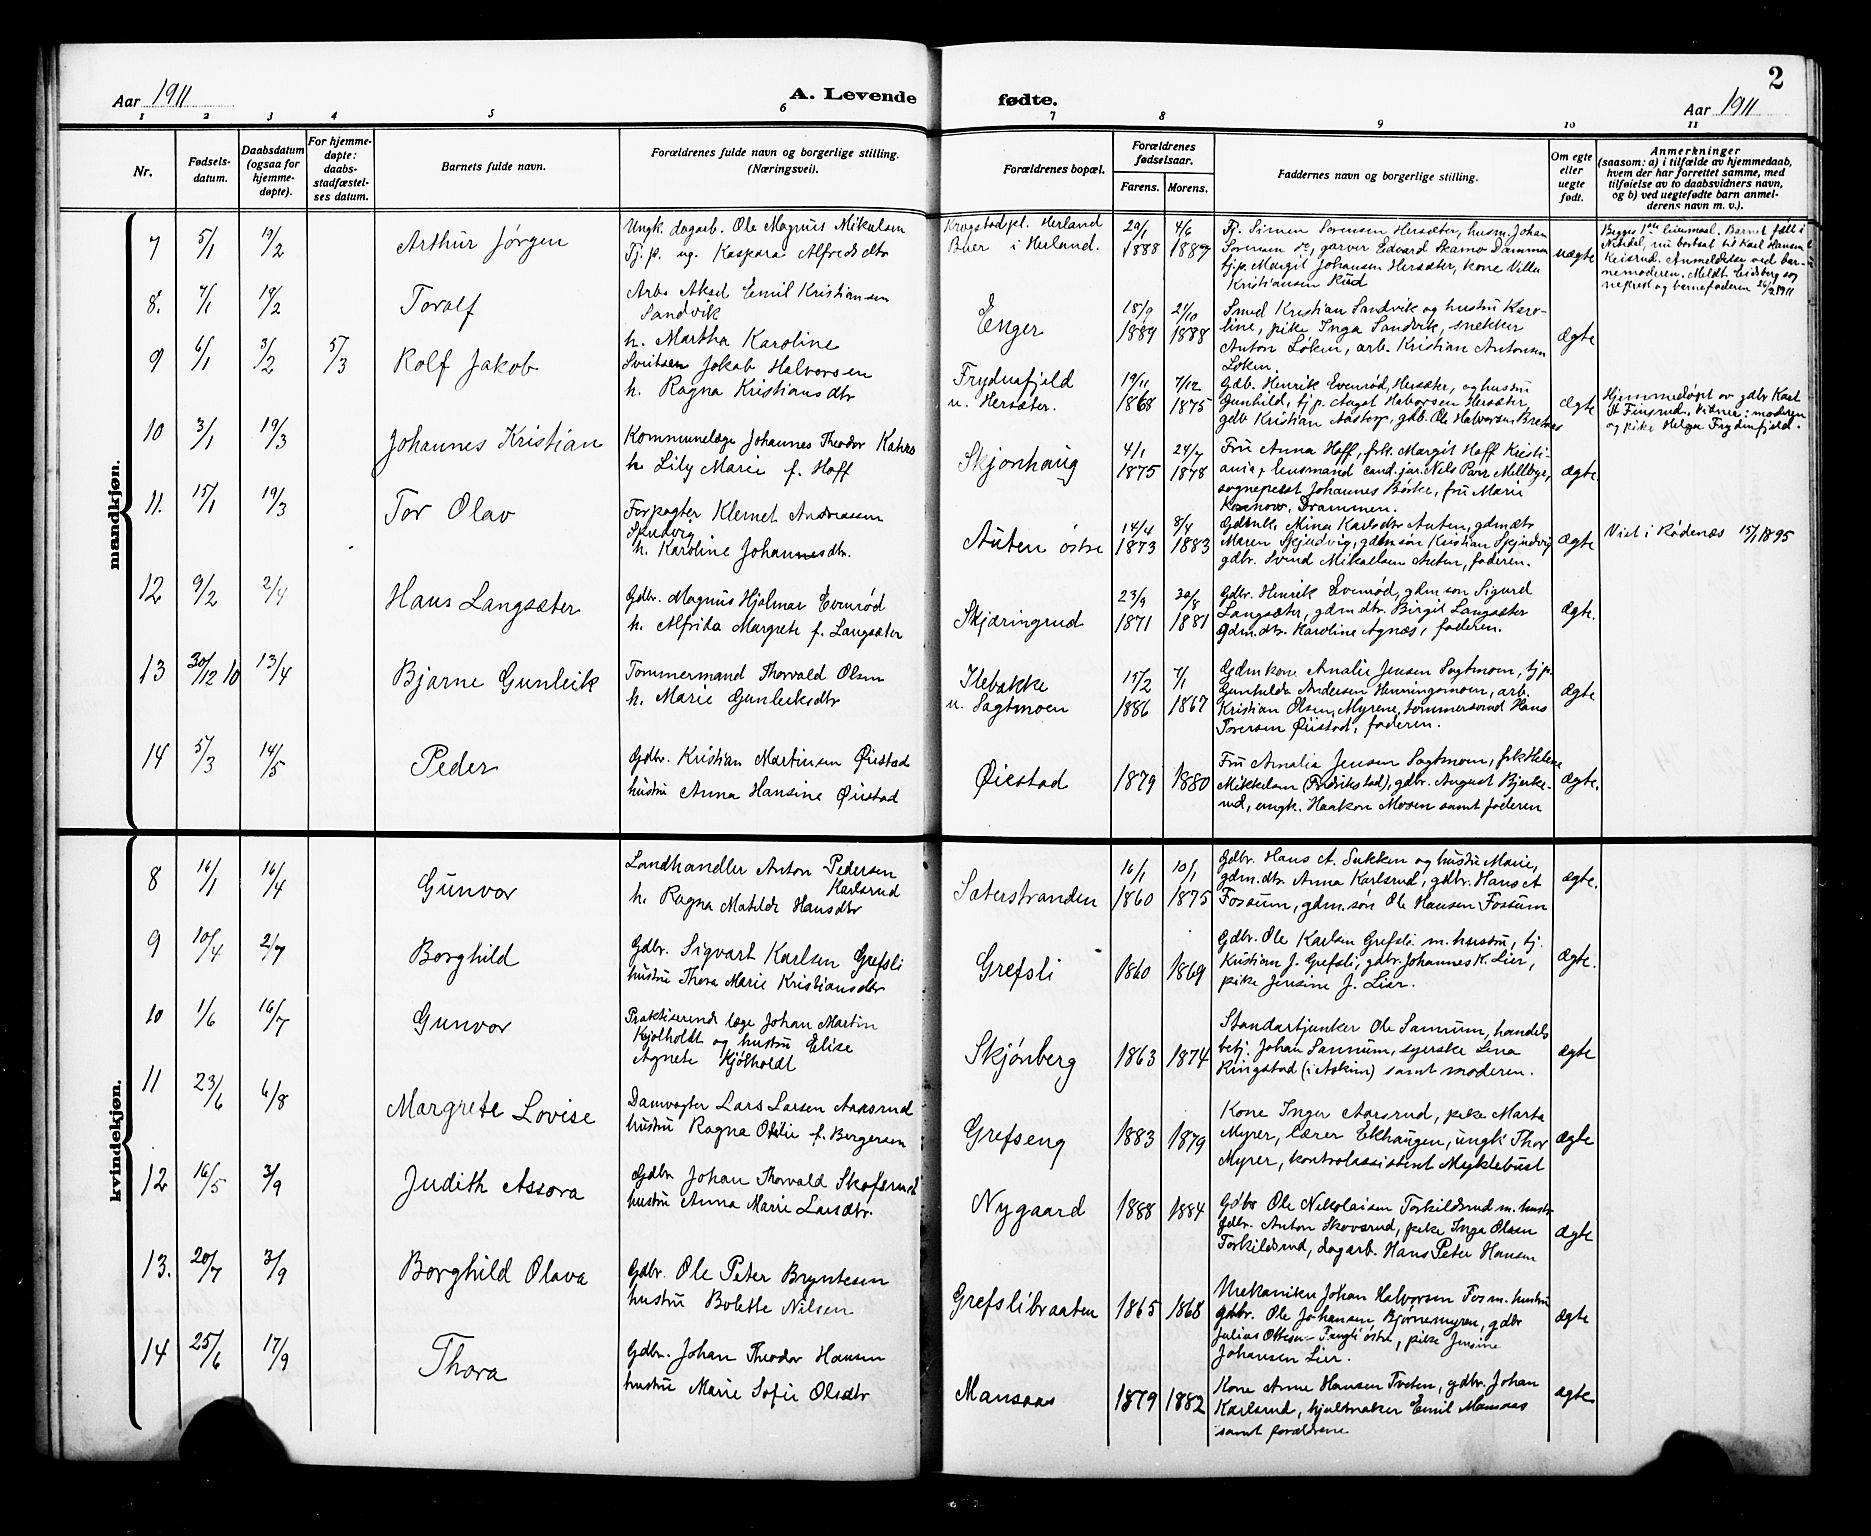 2
Aar 1911
A. Levende fødte.
Aar 1911
1 2 3 4 5 6 7 8 9 10 11
Nr.
Fødsels-
datum.
Daabsdatum
(ogsaa for
hjemme-
døpte).
For hjemme-
døpte:
daabs-
stadfæstel-
ses datum.
Barnets fulde navn.
Forældrenes fulde navn og borgerlige stilling.
(Næringsvei).
Forældrenes bopæl.
Forældrenes
fødselsaar.
Farens. Morens.
Faddernes navn og borgerlige stilling.
Om egte
eller
uegte
født.
Anmerkninger
(saasom: a) i tilfælde av hjemmedaab,
hvem der har forrettet samme, med
tilføielse av to daabsvidners navn,
og b) ved uegtefødte barn anmel-
derens navn m. v.).
mandkjøn.
7 5/1 19/2 Arthur Jørgen
Ungk. dagarb. Ole Magnus Mikalsen
Tj.p. ug. Kaspara Alfredsdtr
Krogstadpl. Herland
Buer i Herland.
20/1 1888 4/6 1889
Tj. Simen Sørensen Hersæter, husm. Johan
Sørensen garver Edvard Damman
tj.p. Margit Johansen Hersæter, kone Villa
Kristiansen Rud
uægte
Begges 1ste leiermaal. Barnet født i
nu bortsat til Karl Hansen
Anmeldelse ved bar-
nemoderen. Meldt Eidsberg sog
neprest og barnefaderen 26/2 1911
8. 7/1 19/2 Toralf
Arb. Aksel Emil Kristiansen
Sandvik
h. Martha Karoline
Enger
18/9 1889 21/10 1888
Smed Kristian Sandvik og hustru Karo-
line, pike Inga Sandvik, snekker
Anton Løken, arb. Kristian Antonsen
Løken.
Ægte
9 6/1 3/2 5/3 Rolf Jakob
Sveitser Jakob Halvorsen
h. Ragna Kristiansdtr
Frydnafjeld
u. Hersæter.
19/11 1868 7/12 1875
Gdb. Henrik Evenrød, Hersæter, og hustru
Gunhild, tj.p. Aagot Halvorsen Hersæter
gdb Kristian Aastorp, gdb. Ole Halvorsen
Ægte
Hjemmedøpt av gdbr Karl
A Finsrud. Vidner: moderen
og pike Helga Frydenfjeld.
10 3/1 19/3 Johannes Kristian
Kommunelæge Johannes Theodor Kahrs
h. Lily Marie f. Hoff
Skjønhaug
4/1 1875 24/7 1878
Fru Anna Hoff, frk. Margit Hoff Kristi-
ania, lensmand cand. jur. Nils Parr Mellbye,
sogneprest Johannes Børke, fru Marie
Drammen.
Ægte.
11. 15/1 19/3 Tor Olav
Forpagter Klemet Andreassen
h. Karoline Johannesdtr.
Auten østre
14/4 1873 8/4 1883
Mina Karlsdtr Auten, gdmdtr
Maren Skjudvig, gdmsøn Kristian Skjudvig
gdbr. Svend Mikalsen Auten, faderen.
Ægte
Viet i Rødenæs 15/1 1895
12 9/2 2/4 Hans Langsæter
Gdbr. Magnus Hjalmar Evenrød
h. Alfrida Margrete f. Langsæter
Skjæringrud
23/9 1871 30/8 1881
Gdbr. Henrik Evenrød, gdmsøn Sigurd
Langsæter, gdm.dtr. Birgit Langsæter
Gdm.dtr. Karoline Agnæs, faderen.
Ægte.
13 30/12 10 13/4 Bjarne Gunleik
Tømmermand Thorvald Olsen
h. Marie Gunleiksdtr
Ilebakke
u. Sagtmoen
15/2 1886 7/1 1867
Gdmkone Amalie Jensen Sagtmoen, tj.p.
Gunhilda Andersen Henningsmoen, arb.
Kristian Olsen, Myrene, tømmersvend Hans
Torersen Øiestad, faderen.
Ægte
14 5/3 14/5 Peder
Gdbr. Kristian Martinsen Øiestad
hustru Anna Hansine Øiestad
Øiestad
1879 1880
Fru Amalia Jensen Sagtmoen, frk Helene
Mikkelsen (Fredrikstad), gdbr. August Bjerke-
rud, ungk. Haakon Mosen samt faderen
Ægte.
kvindekjøn.
8 16/1 16/4 Gunvor
Landhandler Anton Pedersen
Karlsrud
h. Ragna Matilde Hansdtr
Sæterstranden
16/1 1860 10/1 1875
Gdbr. Hans A. Sukken og hustru Marie,
gdm.dtr. Anna Karlsrud, gdbr. Hans A
Fossum, gdm.søn Ole Hansen Fossum
Ægte.
9 10/4 2/7 Borghild
Gdbr. Sigvart Karlsen Grefsli
hustru Thora Marie Kristiansdtr
Grefsli
1860 1869
Gdbr. Ole Karlsen Grefsli m. hustru, tj.
Kristian J. Grefsli, gdbr. Johannes K. Lier,
pike Jensine J. Lier.
Ægte.
10 1/6 16/7 Gunvor
Praktiserende læge Johan Martin
Kjølholdt og hustru Elise
Agnete Kjølholdt
Skjønberg
1863 1874
Standartjunker Ole Sannum, handels
betj. Johan Sannum, syerske Lena
Ringstad (i Askim) samt moderen.
Ægte
11 23/6 6/8 Margrete Lovise
Damvogter Lars Larsen Aaasrud
hustru Ragna Otilie f. Børgersen
Grefseng
1883 1879
Kone Inger Aarsrud, pike Marta
Myrer, lærer Ekhaugen, ungk. Thor
Myrer, kontrolassistent Myklebust
Ægte
12 16/5 3/9 Judith Assora
Gdbr Johan Thorvald Skofsrud
hustru Anna Marie Larsdtr.
Nygaard
1888 1884
Gdbr Ole Nikolaisen Torkildsrud m. hustr.
Gdbr. Anton Skovsrud, pike Inga Olsen
Torkildsrud, dagarb. Hans Peter Hansen
Ægte
13. 20/7 3/9 Borghild Olava
Gdbr. Ole Peter Bryntesen
hustru Bolette Nilsen
Grefslibraaten
1865 1868
Mekaniker Johan Halvorsen Fos m. hustru
Gdbr. Ole Johansen Bjørnemyren, gdbr
Julius Ottesen østre, pike Jensine
Johansen Lier.
Ægte
14 25/6 17/9 Thora
Gdbr. Johan Theodor Hansen
hustru Marie Sofie Olsdtr
Mansaas
1879 1882
Kone Anne Hansen Tveten, gdbr. Johan
Karlsrud, hjulmaker Emil Mansaas
samt forældrene
ægte